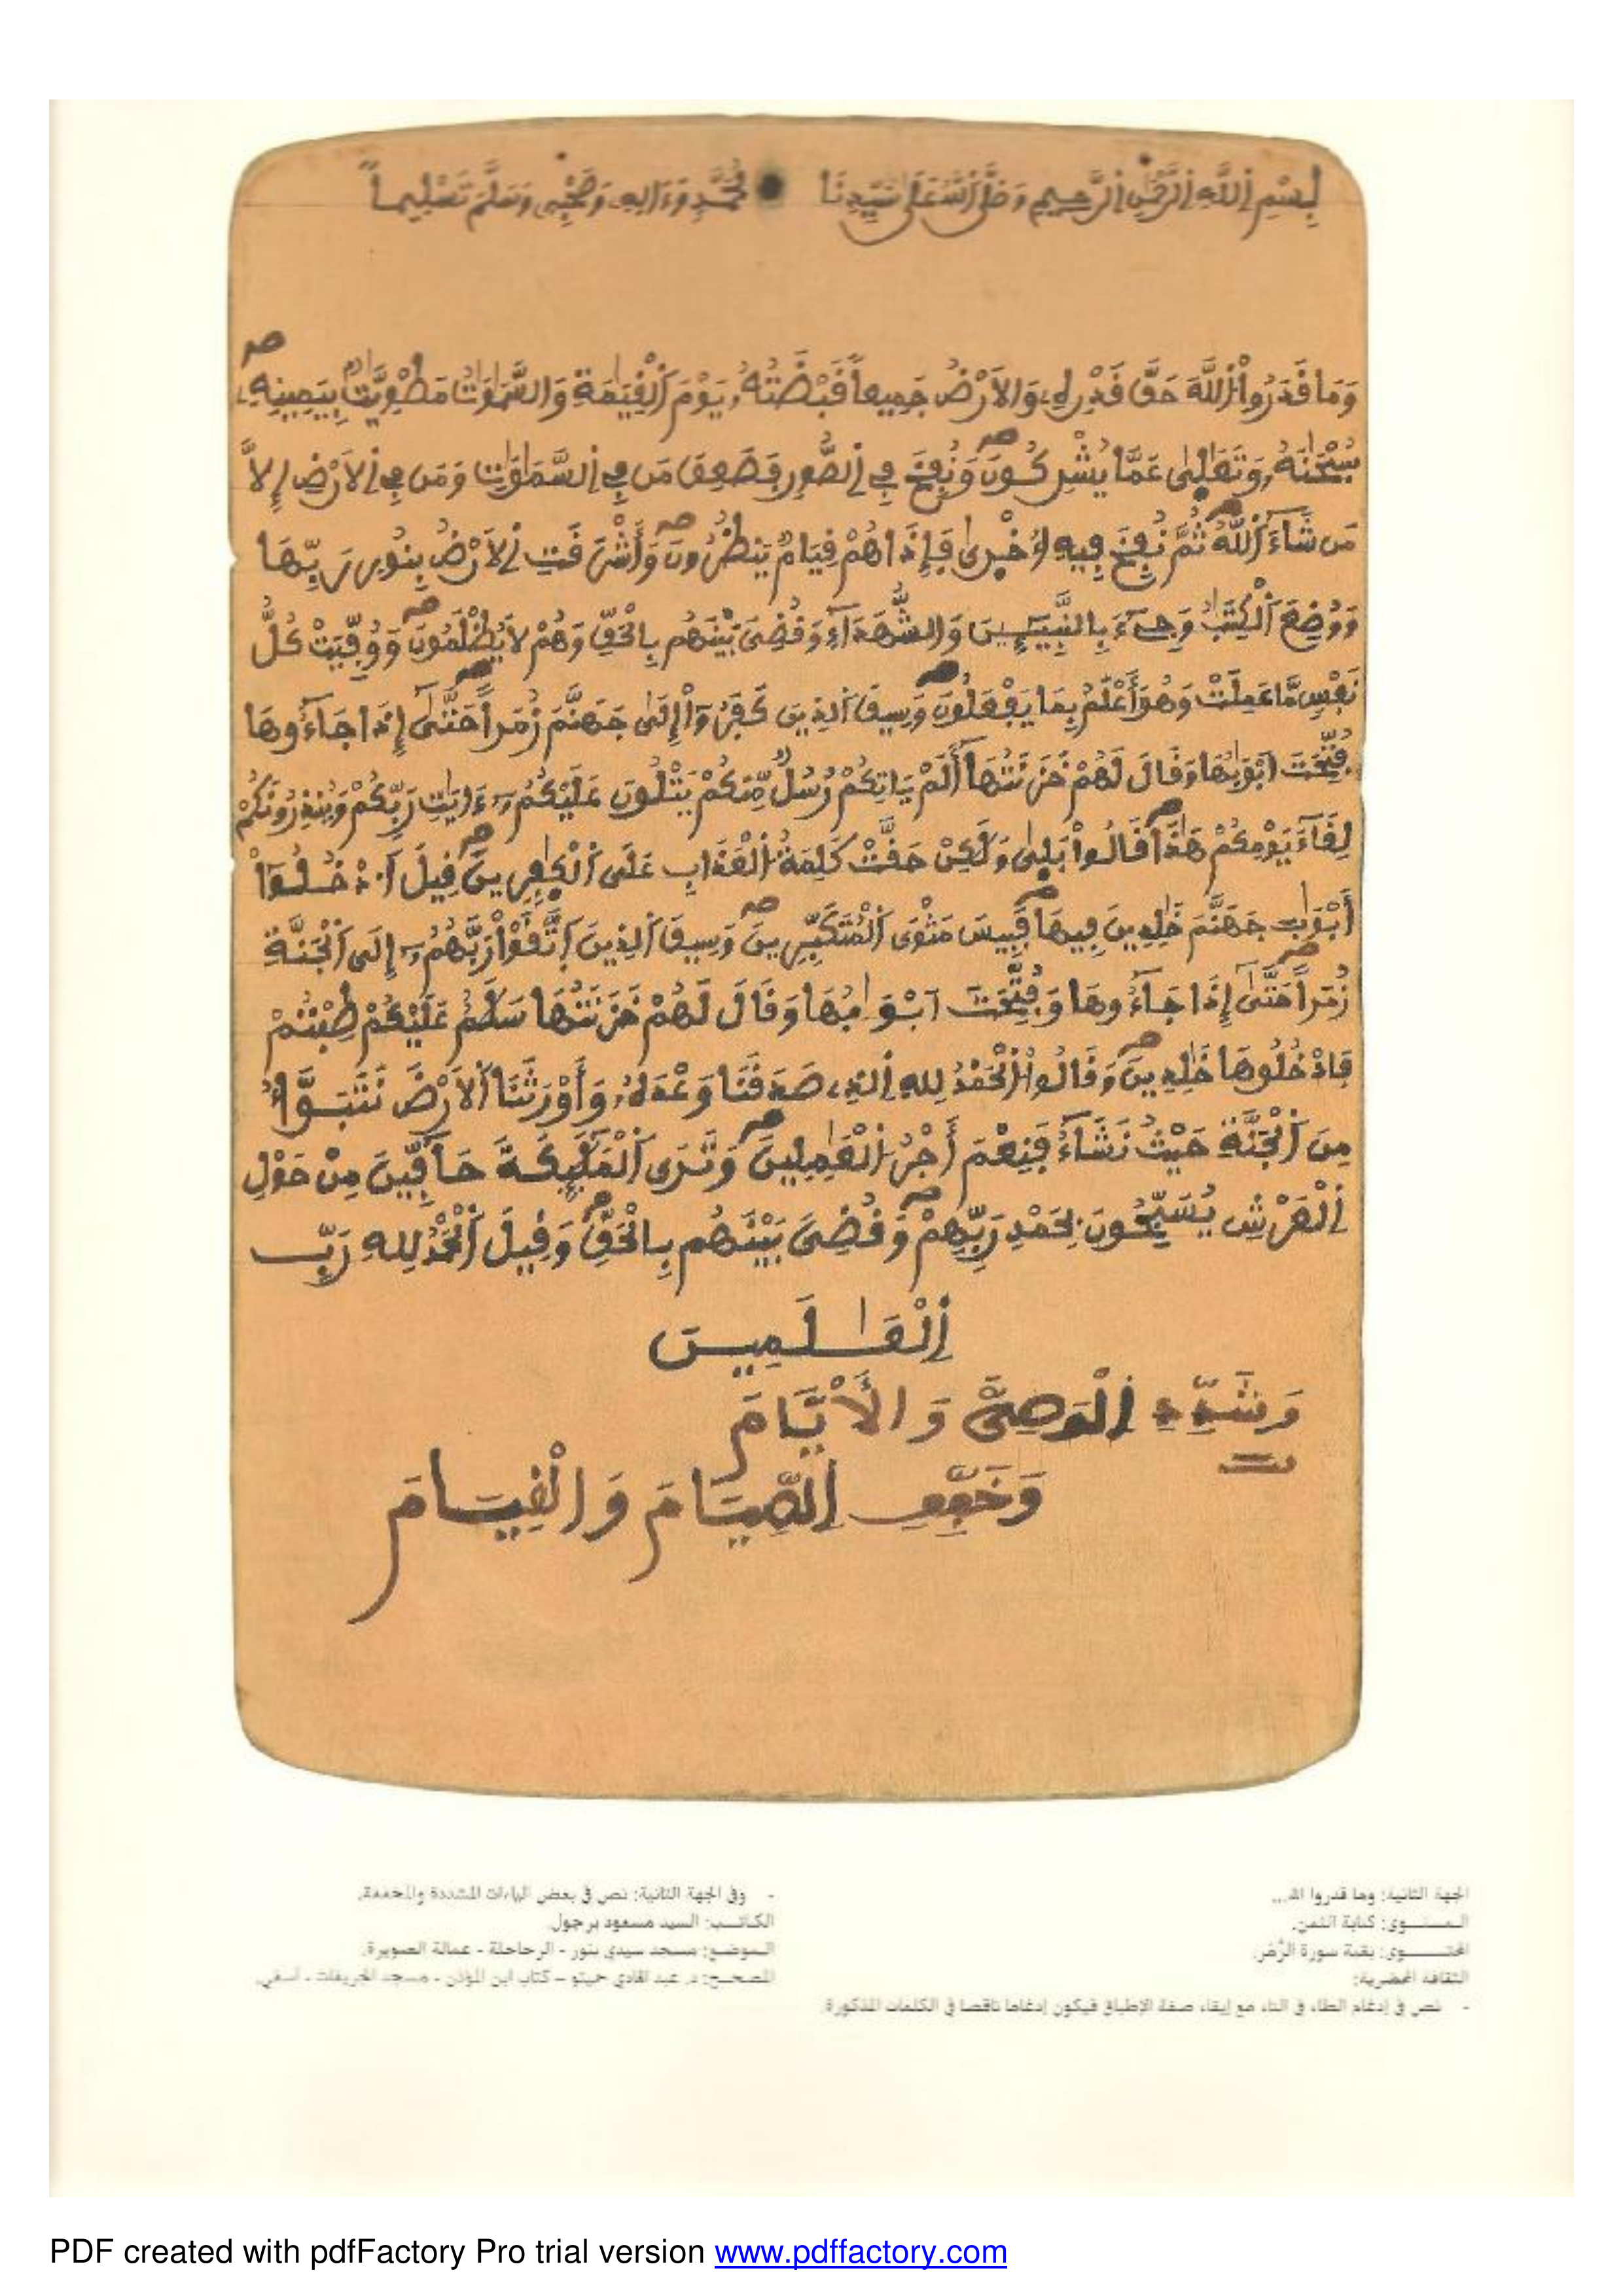 بِسْمِ اِ۬للَّهِ اِ۬لرَّحْمَٰنِ اِ۬لرَّحِيمِ وَصَلَّى اَ۬للَّهُ عَلَىٰ سَيِّدِنَا مُحَمَّدٍ وَءَالِهِۦ وَصَحْبِهِۦ وَسَلَّمَ تَسْلِيماً
وَمَا قَدَرُواْ اُ۬للَّهَ حَقَّ قَدْرِهِۦ وَالَارْضُ جَمِيعاً قَبْضَتُهُۥ يَوْمَ اَ۬لْقِيَٰمَةِ وَالسَّمَٰوَٰتُ مَطْوِيَّٰتُۢ بِيَمِينِهِۦ صه
سُبْحَٰنَهُۥ وَتَعَٰلَىٰ عَمَّا يُشْرِكُونَ صه وَنُفِخَ فِے اِ۬لصُّورِ فَصَعِقَ مَن فِے اِ۬لسَّمَٰوَٰتِ وَمَن فِے اِ۬لَارْضِ إِلَّا
مَن شَآءَ اَ۬للَّهُ صه ثُمَّ نُفِخَ فِيهِ أُخْرَىٰ فَإِذَا هُمْ قِيَامٌ يَنظُرُونَ صه وَأَشْرَقَتِ اِ۬لَارْضُ بِنُورِ رَبِّهَا
وَوُضِعَ اَ۬لْكِتَٰبُ وَجِاْےٓءَ بِالنَّبِيٓـِٕينَ وَالشُّهَدَآءِ وَقُضِىَ بَيْنَهُم بِالْحَقِّ وَهُمْ لَا يُظْلَمُونَ صه وَوُفِّيَتْ كُلُّ
نَفْسٍ مَّا عَمِلَتْ وَهُوَ أَعْلَمُ بِمَا يَفْعَلُونَ صه وَسِيقَ اَ۬لذِينَ كَفَرُوٓاْ إِلَىٰ جَهَنَّمَ زُمَراً صه حَتَّىٰٓ إِذَا جَآءُوهَا
فُتِّحَتَ اَبْوَٰبُهَا وَقَالَ لَهُمْ خَزَنَتُهَآ أَلَمْ يَاتِكُمْ رُسُلٌ مِّنكُمْ يَتْلُونَ عَلَيْكُمُۥٓ ءَايَٰتِ رَبِّكُمْ وَيُنذِرُونَكُمْ
لِقَآءَ يَوْمِكُمْ هَٰذَا صه قَالُواْ بَلَىٰ وَلَٰكِنْ حَقَّتْ كَلِمَةُ اُ۬لْعَذَابِ عَلَى اَ۬لْكَٰفِرِينَ صه قِيلَ اَ۟دْخُلُوٓاْ
أَبْوَٰبَ جَهَنَّمَ خَٰلِدِينَ فِيهَا صه فَبِيسَ مَثْوَى اَ۬لْمُتَكَبِّرِينَ صه وَسِيقَ اَ۬لذِينَ اَ۪تَّقَوْاْ رَبَّهُمُۥٓ إِلَى اَ۬لْجَنَّةِ
زُمَراً صه حَتَّىٰٓ إِذَا جَآءُوهَا وَفُتِّحَتَ اَبْوَٰبُهَا وَقَالَ لَهُمْ خَزَنَتُهَا سَلَٰمٌ عَلَيْكُمْ طِبْتُمْ
فَادْخُلُوهَا خَٰلِدِينَ صه وَقَالُواْ اُ۬لْحَمْدُ لِلهِ اِ۬لذِے صَدَقَنَا وَعْدَهُۥ وَأَوْرَثَنَا اَ۬لَارْضَ نَتَبَوَّأُ
مِنَ اَ۬لْجَنَّةِ حَيْثُ نَشَآءُ فَنِعْمَ أَجْرُ اُ۬لْعَٰمِلِينَ صه وَتَرَى اَ۬لْمَلَٰٓئِكَةَ حَآفِّينَ مِنْ حَوْلِ
اِ۬لْعَرْشِ يُسَبِّحُونَ بِحَمْدِ رَبِّهِمْ صه وَقُضِىَ بَيْنَهُم بِالْحَقِّ صه وَقِيلَ اَ۬لْحَمْدُ لِلهِ رَبِّ
اِ۬لْعَٰلَمِينَ
وَشَدِّدِ اِ۬لْوَصِىَّ وَالْأَيَّامَ
وَخَفِّفِ اِ۬لصِّيَامَ وَالْقِيَامَ
الجهة الثانية: وما قدروا الله...
المستوى: كتابة الثمن.
المحتوى: بقية سورة الزُّمَر.
الثقافة المحضرية:
- نص في إدغام الطاء في التاء مع إبقاء صفة الإطباق فيكون إدغاما ناقصا في الكلمات المذكورة.
- وفي الجهة الثانية: نص في بعض الياءات المشددة والمخففة.
الكاتب: السيد مسعود برجول.
الموضع: مسجد سيدي بنور - الرحاحلة - عمالة الصويرة.
المصحح: د. عبد الهادي حميتو – كتاب ابن المؤذن - مسجد الخريفات - آسفي.
PDF created with pdfFactory Pro trial version www.pdffactory.com